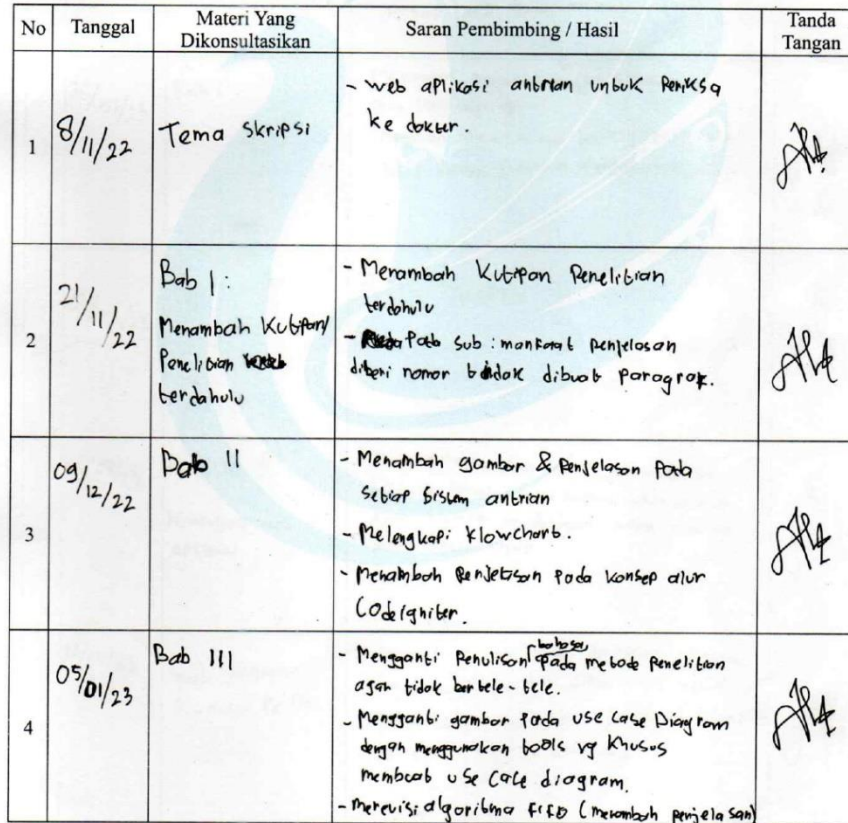 No Tanggal Materi Yang Dikonsultasikan Saran Pembimbing / Hasil Tanda Tangan
1 8/11/22 Tema Skripsi
- web aplikasi antrian untuk Periksa
ke dokter.
2 21/11/22
Bab I :
Menambah Kutipan/
Penelitian
terdahulu
- Menambah Kutipan Penelitian
terdahulu
- Pada Sub : manfaat penjelasan
diberi nomor tidak dibuat paragraf.
3 09/12/22 Bab II
- Menambah gambar & Penjelasan Pada
setiap sistem antrian
- Melengkapi Flowchart.
- Menambah Penjelasan Pada Konsep alur
Codeigniter.
4 05/01/23 Bab III
- Mengganti Penulisan bahasa, pada metode Penelitian
agar tidak bertele-tele.
- Mengganti gambar Pada Use Case Diagram
dengan menggunakan tools yg Khusus
membuat Use Case diagram.
- merevisi algoritma FIFO (menambah penjelasan)